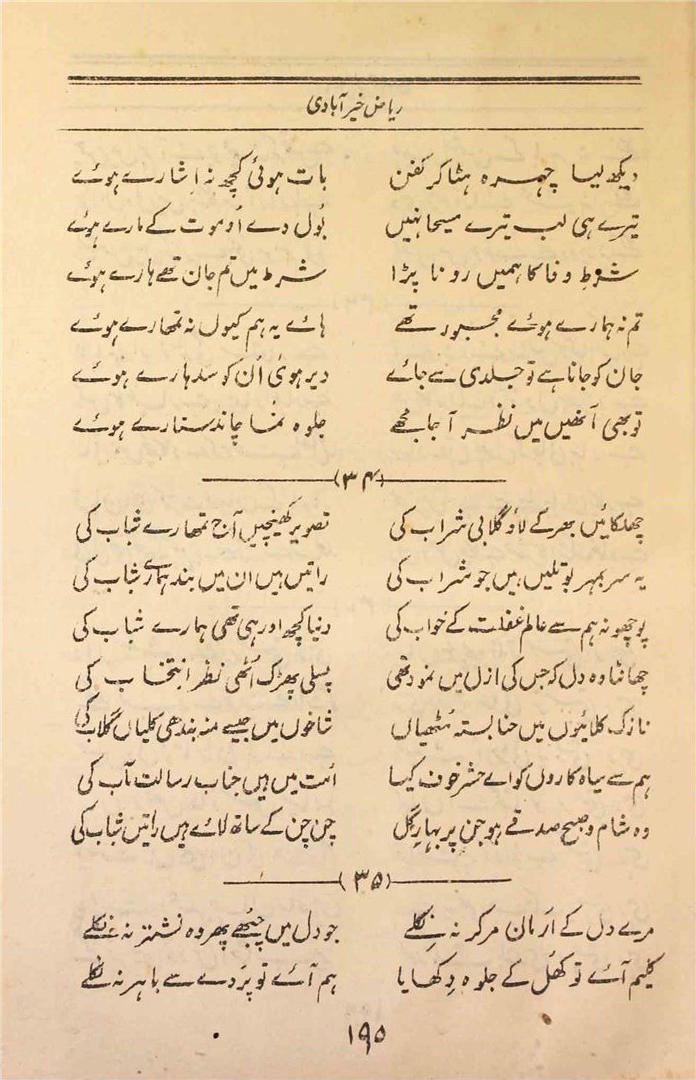 ریاض خیرآبادی
دیکھ لیا چہرہ ہٹا کر کفن بات ہوئی کچھ نہ اشارے ہوئے
تیرے ہی لب تیرے مسیحا نہیں بول دے او موت کے مارے ہوئے
شرطِ وفا کا ہمیں رونا پڑا شرط میں تم جان تھے ہارے ہوئے
تم نہ ہمارے ہوئے مجبور تھے ہائے یہ ہم کیوں نہ تمھارے ہوئے
جان کو جانا ہے تو جلدی سے جائے دیر ہوئی اُن کو سدہارے ہوئے
تو بھی آنھیں میں نظر آ جا مجھے جلوہ نما چاند ستارے ہوئے
(۳۴)
چھلکائیں بھر کے لاؤ گلابی شراب کی تصویر کھینچیں آج تمھارے شباب کی
یہ سر بمہر بوتلیں ہیں جو شراب کی راتیں ہیں ان میں بند ہمارے شباب کی
پوچھو نہ ہم سے عالمِ غفلت کے خواب کی دنیا کچھ اور ہی تھی ہمارے شباب کی
چھانٹا وہ دل کہ جس کی ازل میں نمود تھی پسلی پھڑک اُٹھی نظرِ انتخاب کی
نازک کلائیوں میں حنا بستہ مُٹھیاں شاخوں میں جیسے منہ بندھی کلیاں گلاب کی
ہم سے سیاہ کاروں کو اے حشر خوف کیا اُمت میں ہیں جناب رسالت مآب کی
وہ شام و صبح صدقے ہو جن پر بہارِ گل چن چن کے ساتھ لائے ہیں راتیں شباب کی
(۳۵)
مرے دل کے اَرمان مرکر نہ نِکلے جو دل میں چُبھے پھر وہ نشتر نہ نکلے
کلیم آئے تو کھُل کے جلوہ دِکھایا ہم آئے تو پردے سے باہر نہ نکلے
۱۹۵